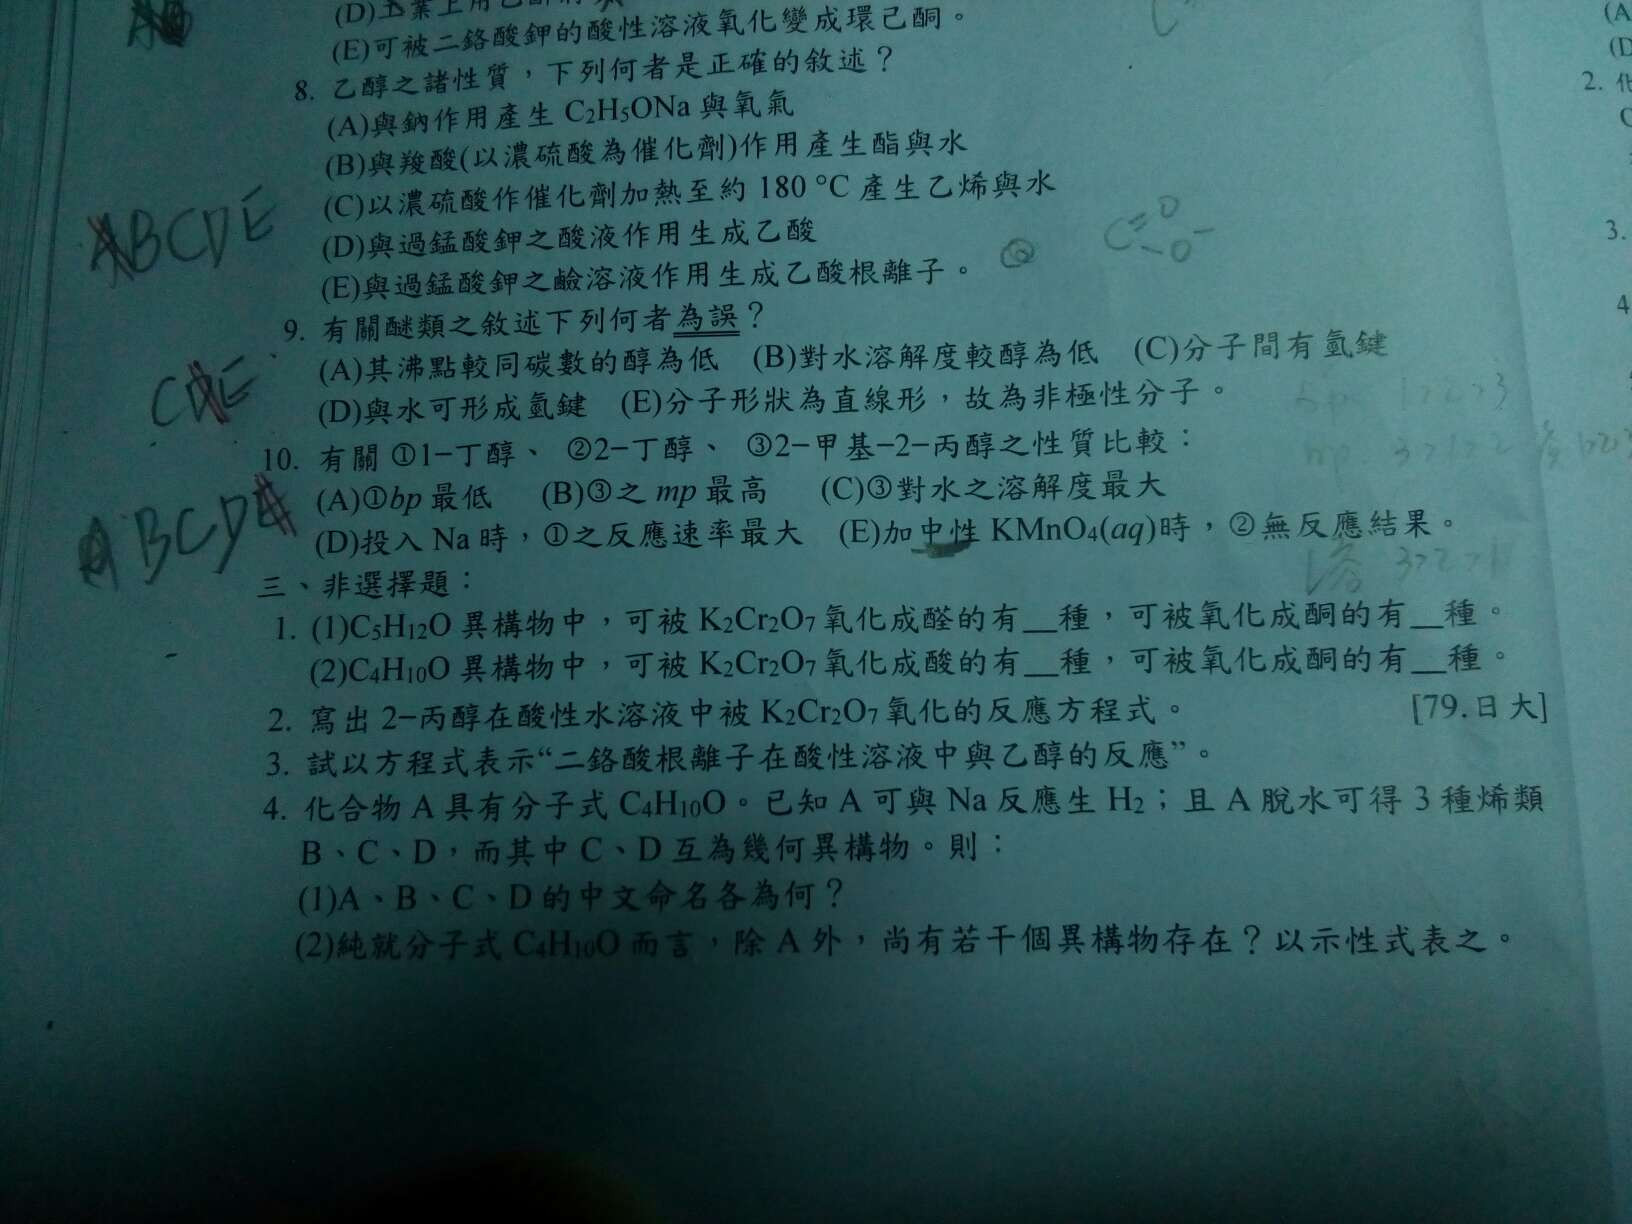 (E)可被二鉻酸鉀的酸性溶液氧化變成環己酮。
8. 乙醇之諸性質，下列何者是正確的敘述？
(A)與鈉作用產生 C2H5ONa 與氧氣
(B)與羧酸(以濃硫酸為催化劑)作用產生酯與水
(C)以濃硫酸作催化劑加熱至約 180 °C 產生乙烯與水
(D)與過錳酸鉀之酸液作用生成乙酸
(E)與過錳酸鉀之鹼溶液作用生成乙酸根離子。
ABCDE
9. 有關醚類之敘述下列何者為誤？
(A)其沸點較同碳數的醇為低 (B)對水溶解度較醇為低 (C)分子間有氫鍵
(D)與水可形成氫鍵 (E)分子形狀為直線形，故為非極性分子。
10. 有關 ①1-丁醇、 ②2-丁醇、 ③2-甲基-2-丙醇之性質比較：
(A)①bp 最低 (B)③之 mp 最高 (C)③對水之溶解度最大
(D)投入 Na 時，①之反應速率最大 (E)加中性 KMnO4(aq)時，②無反應結果。
三、非選擇題：
1. (1)C5H12O 異構物中，可被 K2Cr2O7 氧化成醛的有__種，可被氧化成酮的有__種。
(2)C4H10O 異構物中，可被 K2Cr2O7 氧化成酸的有__種，可被氧化成酮的有__種。
2. 寫出 2-丙醇在酸性水溶液中被 K2Cr2O7 氧化的反應方程式。 [79.日大]
3. 試以方程式表示“二鉻酸根離子在酸性溶液中與乙醇的反應”。
4. 化合物 A 具有分子式 C4H10O。已知 A 可與 Na 反應生 H2；且 A 脫水可得 3 種烯類
B、C、D，而其中 C、D 互為幾何異構物。則：
(1)A、B、C、D 的中文命名各為何？
(2)純就分子式 C4H10O 而言，除 A 外，尚有若干個異構物存在？以示性式表之。